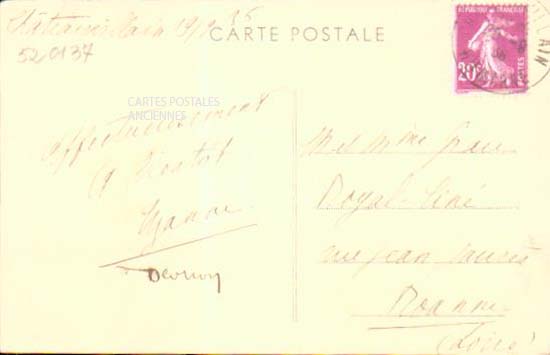 Châteauvillain 19/9 35
520137
CARTE POSTALE
REPUBLIQUE FRANCAISE
20c
POSTES
LLAIN
CARTES POSTALES
ANCIENNES
Affectueusement
A Bientôt
Suzanne
Mr et Mme
Royal-Ciné
rue Jean
Roanne
(Loire)